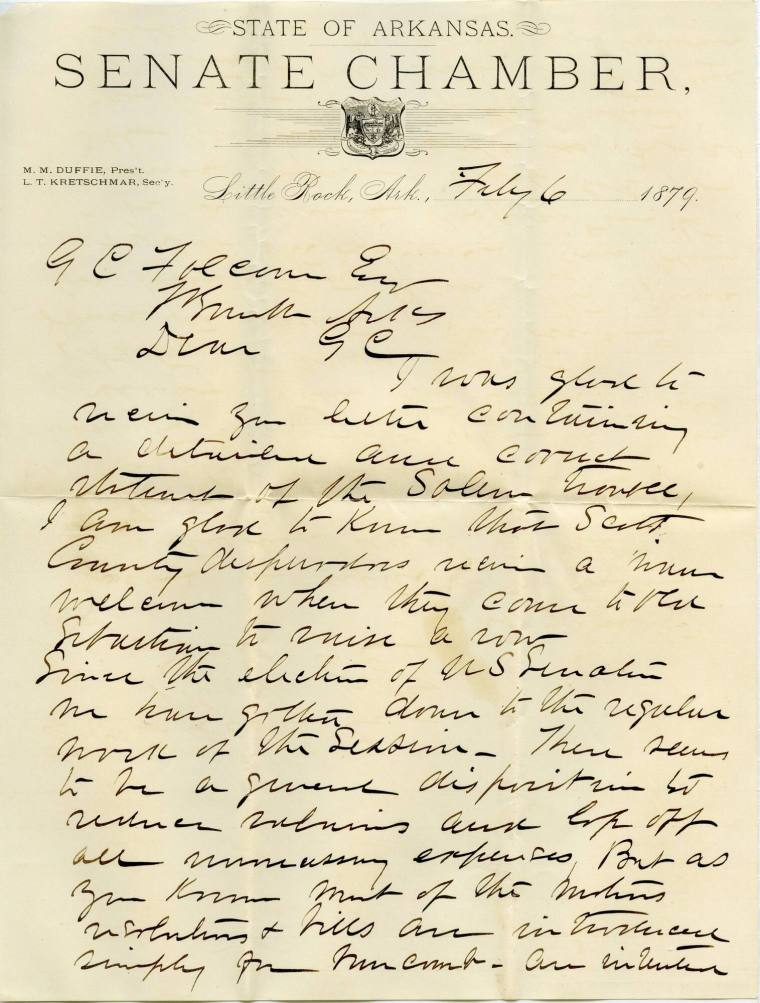 STATE OF ARKANSAS.
SENATE CHAMBER,
M. M. DUFFIE, Pres't.
L. T. KRETSCHMAR, Sec'y.
Little Rock, Ark., Feby 6 1879.
G C Folcom Esq
Ft Smith Arks
Dear G C
I was glad to
receive your letter containing
a detailed and correct
statement of the Salem trouble,
I am glad to know that Scott
County desperados receive a warm
welcome when they come to Old
Sebastian to raise a row
Since the election of US Senator
we have gotten down to the regular
work of the Session - There seems
to be a general disposition to
reduce salaries and lop off
all unnecessary expenses, But as
you know most of the motions
resolutions & bills are introduced
simply for buncomb - are intended